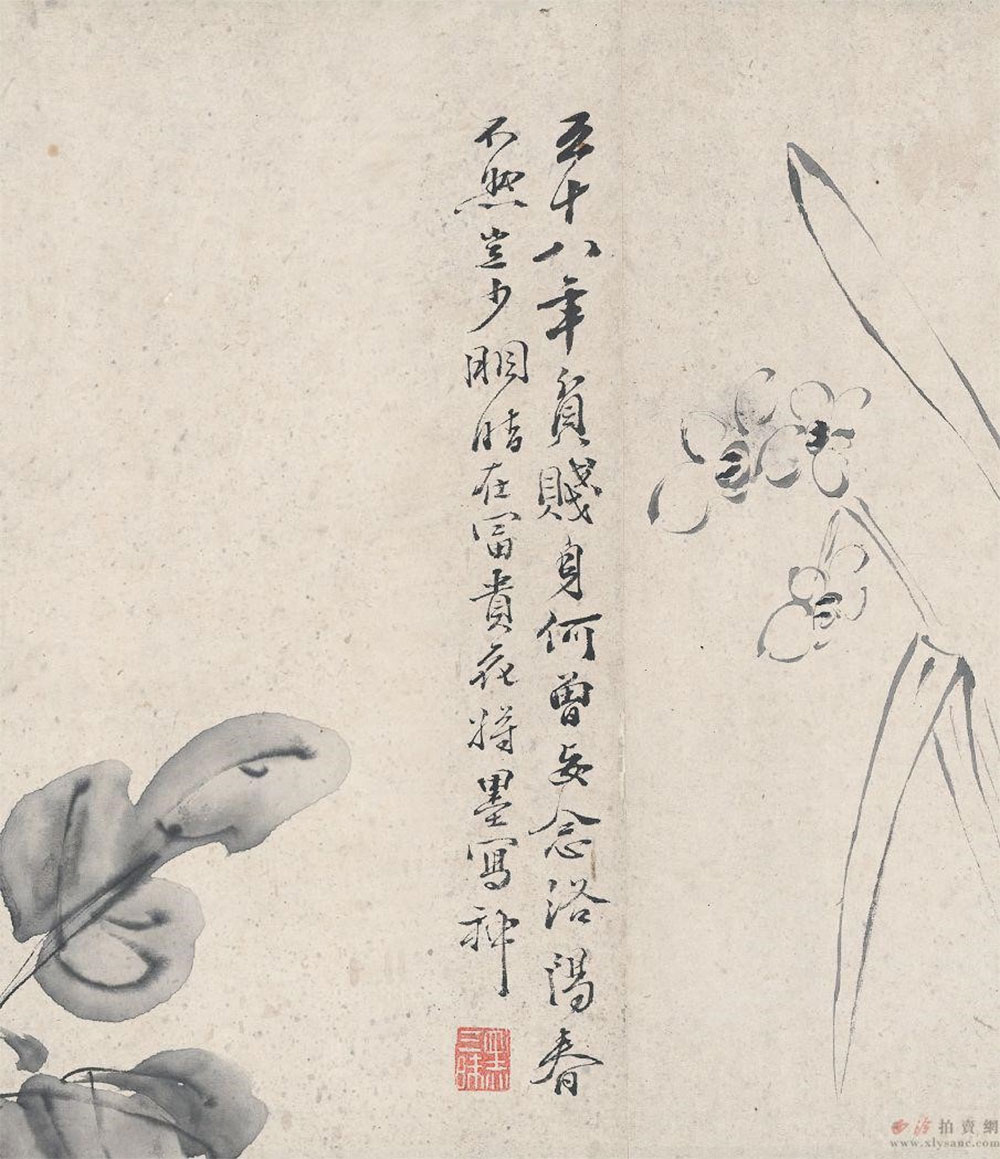 五十八年貧賤身何曾妄念洛陽春
不然豈少胭脂在冨貴花將墨冩神
西泠拍賣網
www.xlysauc.com